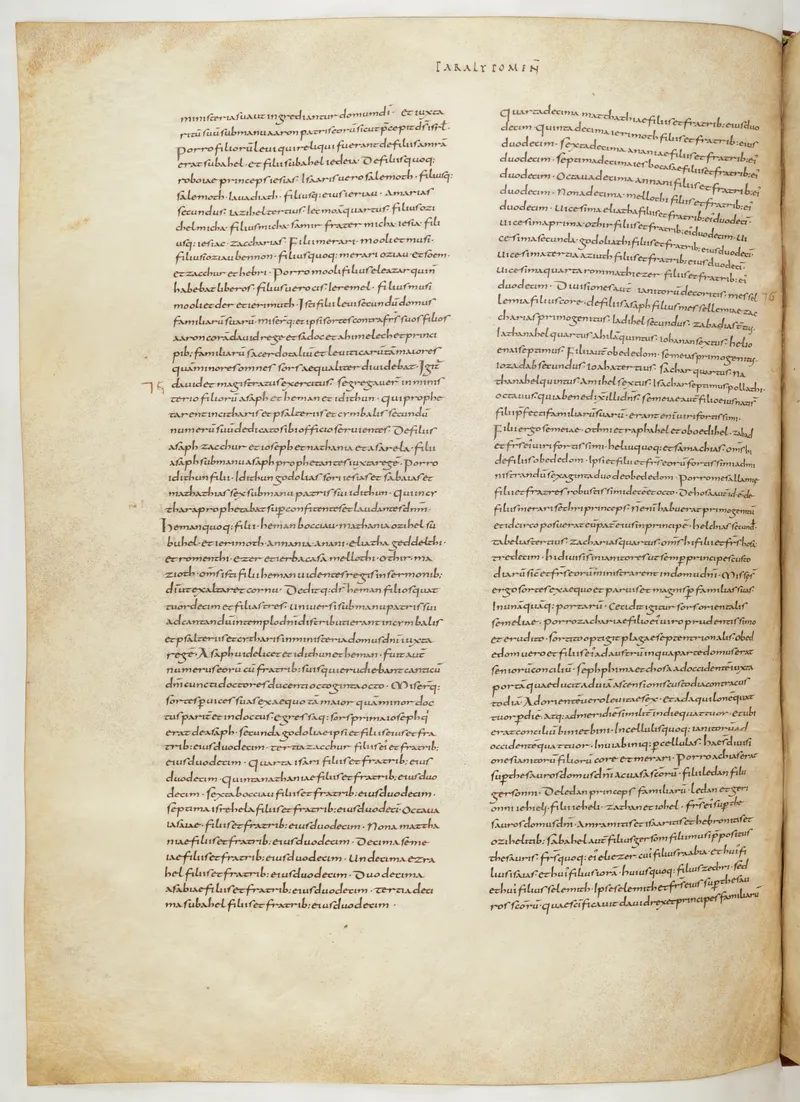 PARALYPOMEÑ
ministeria sua ut ingrediantur domum dñi · Et iuxta
ritū suū sub manu aaron patris eorū sicut p̄cepit dñs isr̄l.
Porro filiorū leui qui reliqui fuerant de filiis amrā
erat subahel · et filiis subahel iedeia · De filiis quoq;
roboiae princeps iesias · Isaaris uero salemoth · filiusq;
salemoth · iauadiath · filiusq; eius ieriau · amarias
secundus · iazihel tertius · iecmaā quartus · filius ozi
hel micha · filius micha · samir · frater micha · iesia · fili
usq; iesiae · zaccharias · Filii merari · mooli et musi ·
filius ioziau bennon · filius quoq; merari oziau · et soem ·
et zacchur et hebri · Porro mooli filius eleazar qui ñ
habebat liberos · filius uero cis · ieremel · filii musi
mooli eder et ierimuth · Isti filii leui secundū domus
familiarū suarū · miserq; et ipsi sortes contra frs̄ suos filios
aaron corā dauid rege et sadoc et ahimelech et princi
pib; familiarū sacerdotaliū et leuiticarū tā maiores
quā minores omnes sors aequaliter diuidebat · Igit̄
75 dauid et magistratus exercitus · segregauer̄ in minis
terio filiorū asaph et heman et idithun · qui prophe
tarent in citharis et psalteriis et cymbalis secundū
numerū suū dedicato sibi officio seruientes · De filiis
asaph zacchur et ioseph et nathania et asarela · filii
asaph sub manu asaph prophetantes iuxta regē · Porro
idithun filii · idithun godolias sori iesias et sabaias et
mathathias sex sub manu patris sui idithun · qui in cy
thara prophetabat sup confitentes et laudantes dnm̄ ·
Heman quoq; filii · heman bocciau · mathania ozihel su
buhel · et ierimoth · annania anani · eliatha geddelthi ·
et romenthi · ezer et ierbacasā mellothi · othir · ma
zioth · om̄s isti filii heman uidentes regis in sermonib;
dī ut exaltaret cornu · Deditq; dš heman filios quat
tuordecim et filias tres · Uniuersi sub manu patris sui
ad cantandū in templo dn̄i distributi erant in cymbalis
et psalteriis et cytharis in ministeria domus dn̄i iuxta
regē · Asaph uidelicet et idithun et heman · fuit aūt
numerus eorū cū fratrib; suis qui erudiebant canticū
dn̄i cuncti doctores ducenti octoginta octo · Miserq;
sortes p uices suas ex aequo tā maior quā minor doc
tus parit̄ et indoctus · egressaq; sors prima ioseph q̄
erat de asaph · secunda godoliae ipsi et filiis eius et fra
trib; eius duodecim · tertia zacchur filiis ei et fratrib;
eius duodecim · quarta isari filiis et fratrib; eius
duodecim · quinta nathaniae filiis et fratrib; eius duo
decim · sexta bocciau filiis et fratrib; eius duodecim ·
septima isrehela filiis et fratrib; eius duodeci · Octaua
iasaiae · filiis et fratrib; eius duodecim · Nona mattha
niae filiis et fratrib; eius duodecim · Decima seme
iae filiis et fratrib; eius duodecim · Undecima ezra
hel filiis et fratrib; eius duodecim · Duodecima
asabiae filiis et fratrib; eius duodecim · tertia deci
ma subahel filiis et fratrib; eius duodecim ·
Quarta decima matthathiae filiis et fratrib; eius duo
decim · quinta decima ierimoth filiis et fratrib; eius
duodecim · sexta decima ananiae filiis et fratrib; ei
duodecim · septima decima iesbocasae filiis et fratrib; ei
duodecim · Octaua decima annani filiis et fratrib; ei
duodecim · Nona decima mellothi filiis et fratrib; ei
duodecim · Uicesima eliatha filiis et fratrib; ei duodeci ·
uicesima prima othir filiis et fratrib; ei duodecim · ui
cesima secunda godoliathi filiis et fratrib; eius duodeci ·
Uicesima tertia aziuth filiis et fratrib; eius duodeci ·
Uicesima quarta rommathiezer filiis et fratrib; ei
duodecim · Diuisiones aūt ianitorū de coritis · messel 76
lemia filius core · de filiis asaph filius messellemiae zac
charias primogenitus · iadihel secundus · zabadias tertius ·
iathanahel quartus · ahilā quintus · iohanan sextus · helio
enai septimus · Filii aūt obededom · semeias primogenitus ·
iozadab secundus · ioaha tertius · sachar quartus · na
thanahel quintus · amihel sextus · Isachar septimus pollathi
octauus quia benedixit illi dn̄s · semeiae aūt filio eius nati s
filii p̄fecti familiarū suarū · erant enī uiri fortissimi ·
Filii ergo semeiae · othni et raphahel et oboedihel · zabad
et frs̄ ei uiri fortissimi · heliu quoq; et samachias · om̄s hi
de filiis obededom · Ipsi et filii et frs̄ eorū fortissimi ad mi
nistrandū sexaginta duo de obededom · Porro mesellamiae
filii et fratres robustissimi decē et octo · De hosa aūt id est de
filiis merari sechri princeps · Ñ enī habuerat primogenitū
et idcirco posuerat eū pater eius in principē · helchias secund·
tabelias tertius · zacharias quartus · om̄s hi filii et frs̄ hosa
tredecim · hi diuisi s in ianitores ut semp principes custo
diarū sic et frs̄ eorū ministrarent in domu dn̄i · Missę s
ergo sortes ex aequo et paruis et magnis p familias suas
In unāquāq; portarū · Cecidit igitur sors orientalis
semeliae · porro zachariae filio eius uiro prudentissimo
et erudito · sortito optigit plaga septentrionalis · obed
edom uero et filiis ei ad austrū in qua parte domus erat
seniorū conciliū · sephphima et hosa ad occidentē iuxta
portā quae ducit ad uiā ascensionis custodia contra cus
todiā · Ad orientē uero leuitae sex · et ad aquilonē quat
tuor p diē · atq; ad meridiē similit̄ in die quattuor · et ubi
erat conciliū bini et bini · In cellulis quoq; ianitorū ad
occidentē quattuor · In uia biniq; p cellulas · hae s̄ diuisi
ones ianitorū filiorū core et merari · Porro achias erat
sup thesauros domus dn̄i ac uasa scōrū · filii ledan filii
gersonni · De ledan principes familiarū · ledan et gersi
onni iehieli · filii iehieli · zathan et iohel · frs̄ ei sup the
sauros domus dn̄i · Amramitis et isaaritis et hebronitis et
ozihelitab; · sabahel aūt filius gersom filii musi p̄positus
thesauris · frs̄ quoq; ei eliezer cui filius raabia · et hui fi
lius isaias et hui filius iorā · huius quoq; filius zechri · sed
et hui filius selemith · Ipse selemith et frs̄ eius sup thesau
ros scōrū · quae scificauit dauid rex et principes familiarū